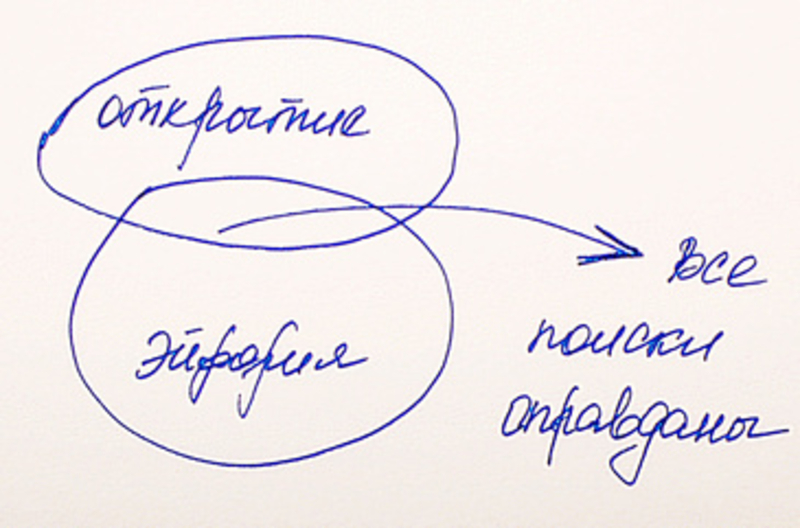 открытие
эйфория
Все
поиски
оправданы